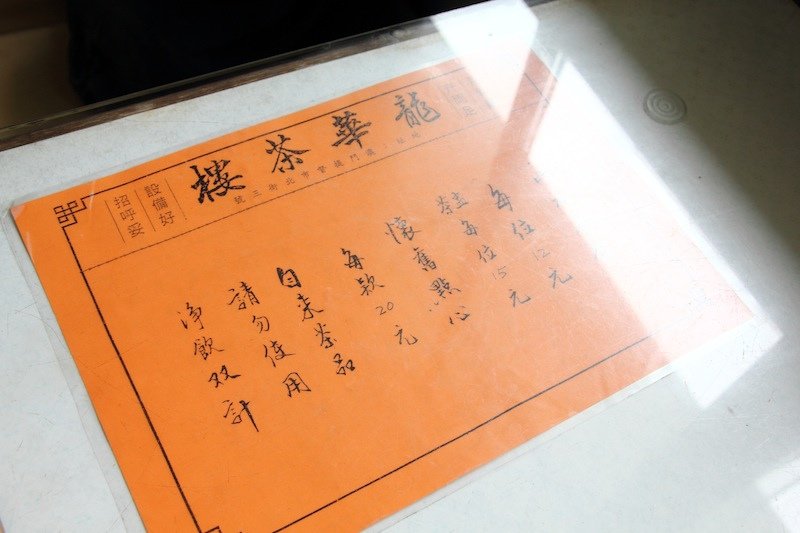 龍華茶樓
地址：澳門提督市北街三號
設備好
招呼妥
每位12元
盅茶每位15元
懷舊點心
每款20元
自来茶品
請勿使用
淨飲双計